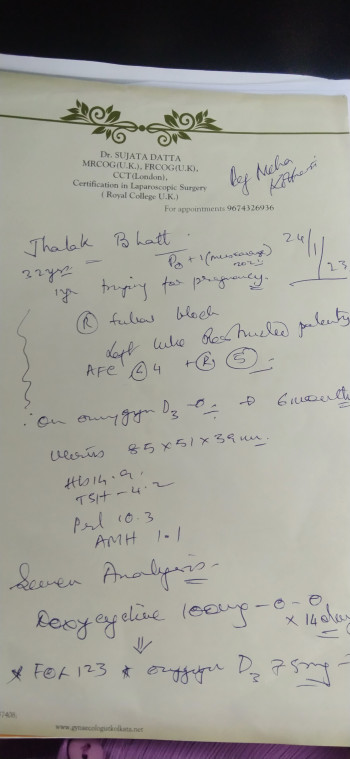 Dr. SUJATA DATTA
MRCOG(U.K.), FRCOG(U.K),
CCT(London),
Certification in Laparoscopic Surgery
( Royal College U.K.)
For appointments 9674326936
Ref Neha Kothari
Jhalak Bhatt
24/1/23
32yrs P0 + 1 (miscarriage)
1yr trying for pregnancy.
(R) tubal block
Left tube Restricted patency
AFC (L) 4 + (R) 5
on D3 6 months
Uterus 85 x 51 x 39 mm.
Hb 14.9.
TSH - 4.2
Prl 10.3
AMH 1.1
Semen Analysis
Doxycycline 100mg - 0 - 0
x 14 days
D3 75mg
www.gynaecologistkolkata.net